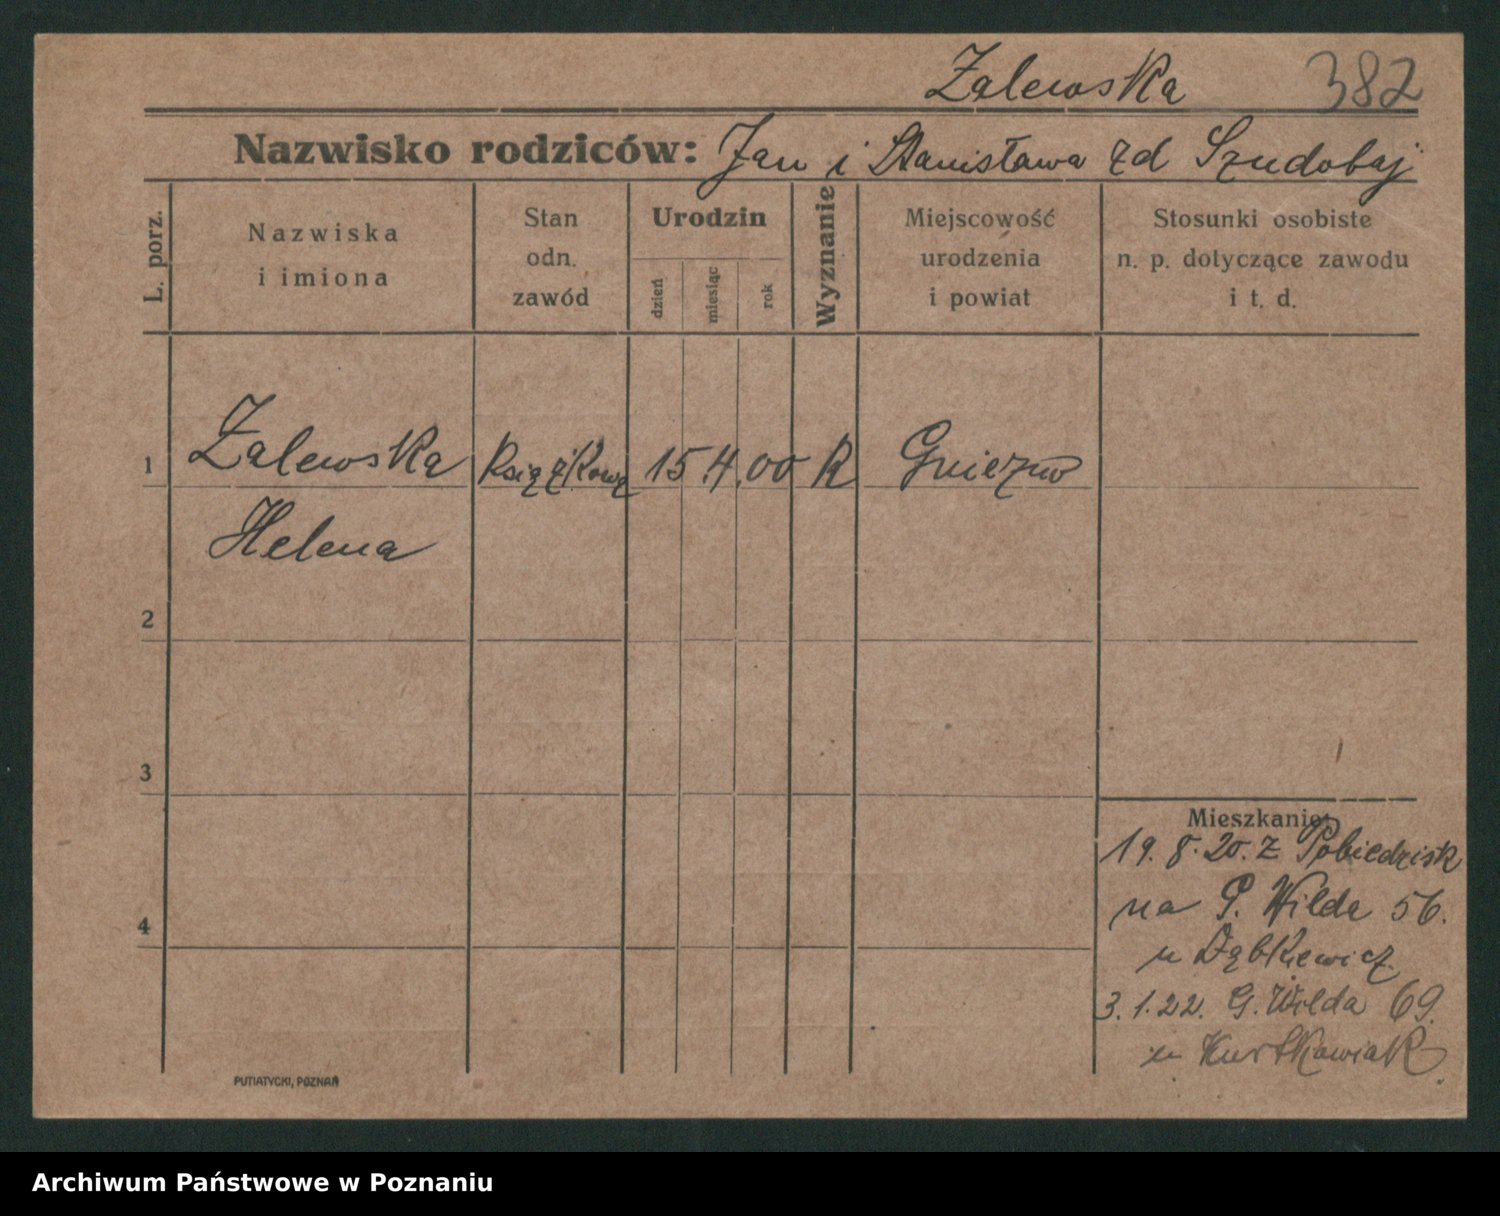 Zalewska 382
Nazwisko rodziców: Jan i Stanisława zd Szudobaj
L. porz.
Nazwiska
i imiona
Stan
odn.
zawód
Urodzin
dzień
miesiąc
rok
Wyznanie
Miejscowość
urodzenia
i powiat
Stosunki osobiste
n. p. dotyczące zawodu
i t. d.
1 Zalewska książkową 15.4.00 R Gniezno
Helena
2
3
Mieszkanie:
19.8.20. z Pobiedzisk
na G. Wilda 56.
4
u Dąbkiewicz
3.1.22. G. Wilda 69.
u Kurtkowiak
PUTIATYCKI, POZNAŃ
Archiwum Państwowe w Poznaniu